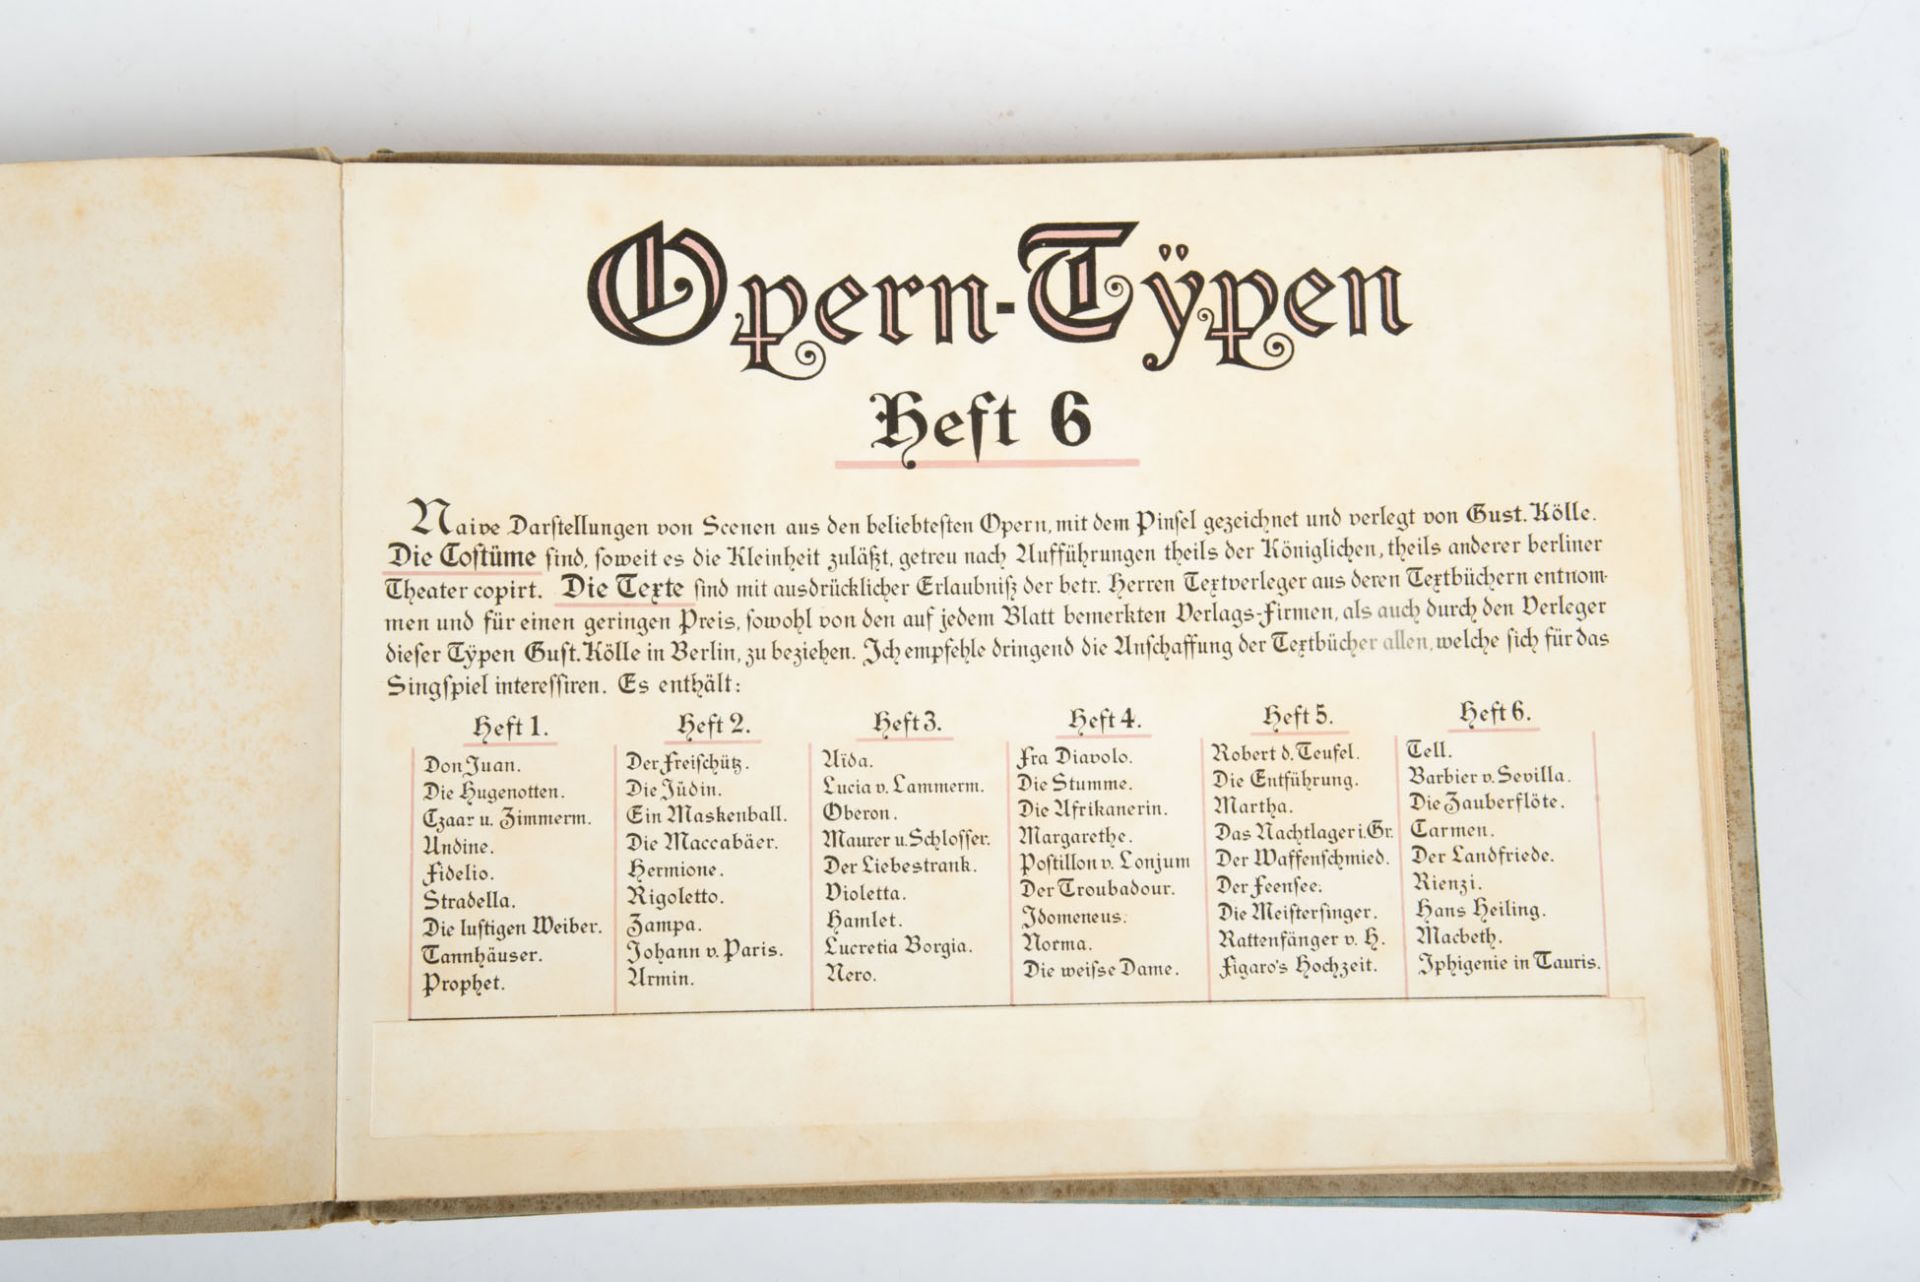 Opern-Tÿpen
Heft 6
Naive Darstellungen von Scenen aus den beliebtesten Opern, mit dem Pinsel gezeichnet und verlegt von Gust. Kölle.
Die Costüme sind, soweit es die Kleinheit zuläßt, getreu nach Aufführungen theils der Königlichen, theils anderer berliner
Theater copirt. Die Texte sind mit ausdrücklicher Erlaubniß der betr. Herren Textverleger aus deren Textbüchern entnom-
men und für einen geringen Preis, sowohl von den auf jedem Blatt bemerkten Verlags-Firmen, als auch durch den Verleger
dieser Tÿpen Gust. Kölle in Berlin, zu beziehen. Ich empfehle dringend die Anschaffung der Textbücher allen, welche sich für das
Singspiel interessiren. Es enthält:
Heft 1.
Don Juan.
Die Hugenotten.
Czaar u. Zimmerm.
Undine.
Fidelio.
Stradella.
Die lustigen Weiber.
Tannhäuser.
Prophet.
Heft 2.
Der Freischütz.
Die Jüdin.
Ein Maskenball.
Die Maccabäer.
Hermione.
Rigoletto.
Zampa.
Johann v. Paris.
Armin.
Heft 3.
Aïda.
Lucia v. Lammerm.
Oberon.
Maurer u. Schlosser.
Der Liebestrank.
Violetta.
Hamlet.
Lucretia Borgia.
Nero.
Heft 4.
Fra Diavolo.
Die Stumme.
Die Afrikanerin.
Margarethe.
Postillon v. Lonjum
Der Troubadour.
Idomeneus.
Norma.
Die weisse Dame.
Heft 5.
Robert d. Teufel.
Die Entführung.
Martha.
Das Nachtlager i. Gr.
Der Waffenschmied.
Der Feensee.
Die Meistersinger.
Rattenfänger v. H.
Figaro's Hochzeit.
Heft 6.
Tell.
Barbier v. Sevilla.
Die Zauberflöte.
Carmen.
Der Landfriede.
Rienzi.
Hans Heiling.
Macbeth.
Iphigenie in Tauris.